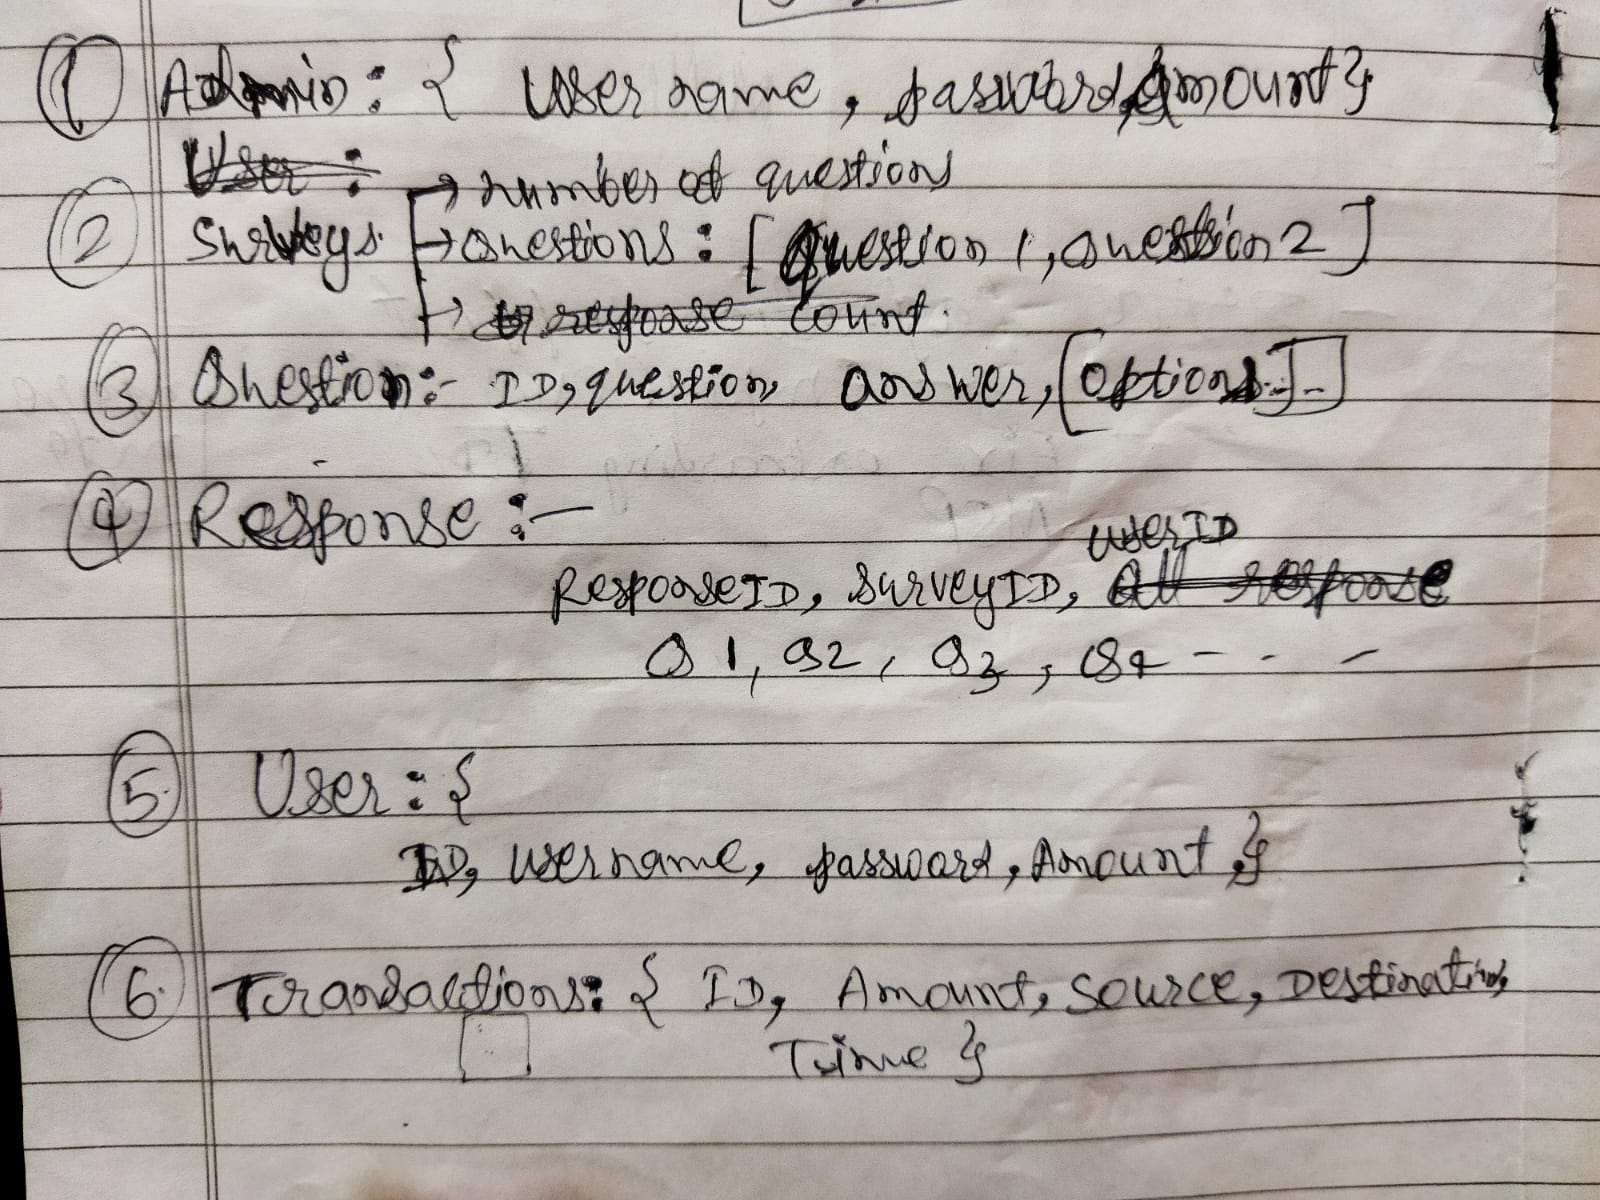 ① Admin: { Username, password, Amount }
User :
② Surveys → number of questions
→ Questions: [Question 1, Question 2]
→ response count.
③ Question:- ID, question, answer, [Options...]
④ Response :-
userID
ResponseID, SurveyID, All response
Q1, Q2, Q3, Q4 - - -
⑤ User: {
ID, Username, password, Amount, }
⑥ Transactions: { ID, Amount, Source, Destination,
Time }